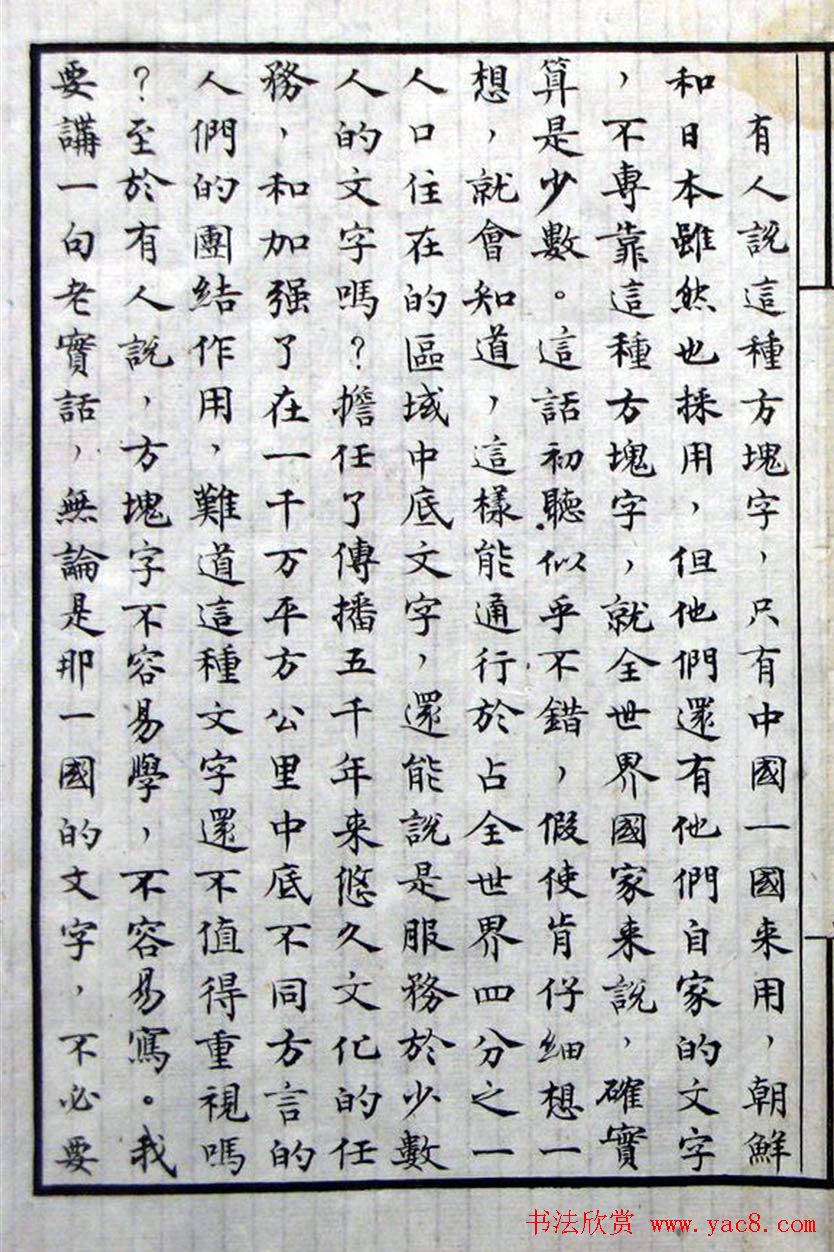 有人説這種方塊字，只有中國一國来用，朝鮮
和日本雖然也採用，但他們還有他們自家的文字
，不專靠這種方塊字，就全世界國家来説，確實
算是少數。這話初聽似乎不錯，假使肯仔細想一
想，就會知道，這樣能通行於占全世界四分之一
人口住在的區域中底文字，還能説是服務於少數
人的文字嗎？擔任了傳播五千年来悠久文化的任
務，和加强了在一千万平方公里中底不同方言的
人們的團結作用，難道這種文字還不值得重視嗎
？至於有人説，方塊字不容易學，不容易寫。我
要講一句老實話，無論是那一國的文字，不必要
书法欣赏 www.yac8.com